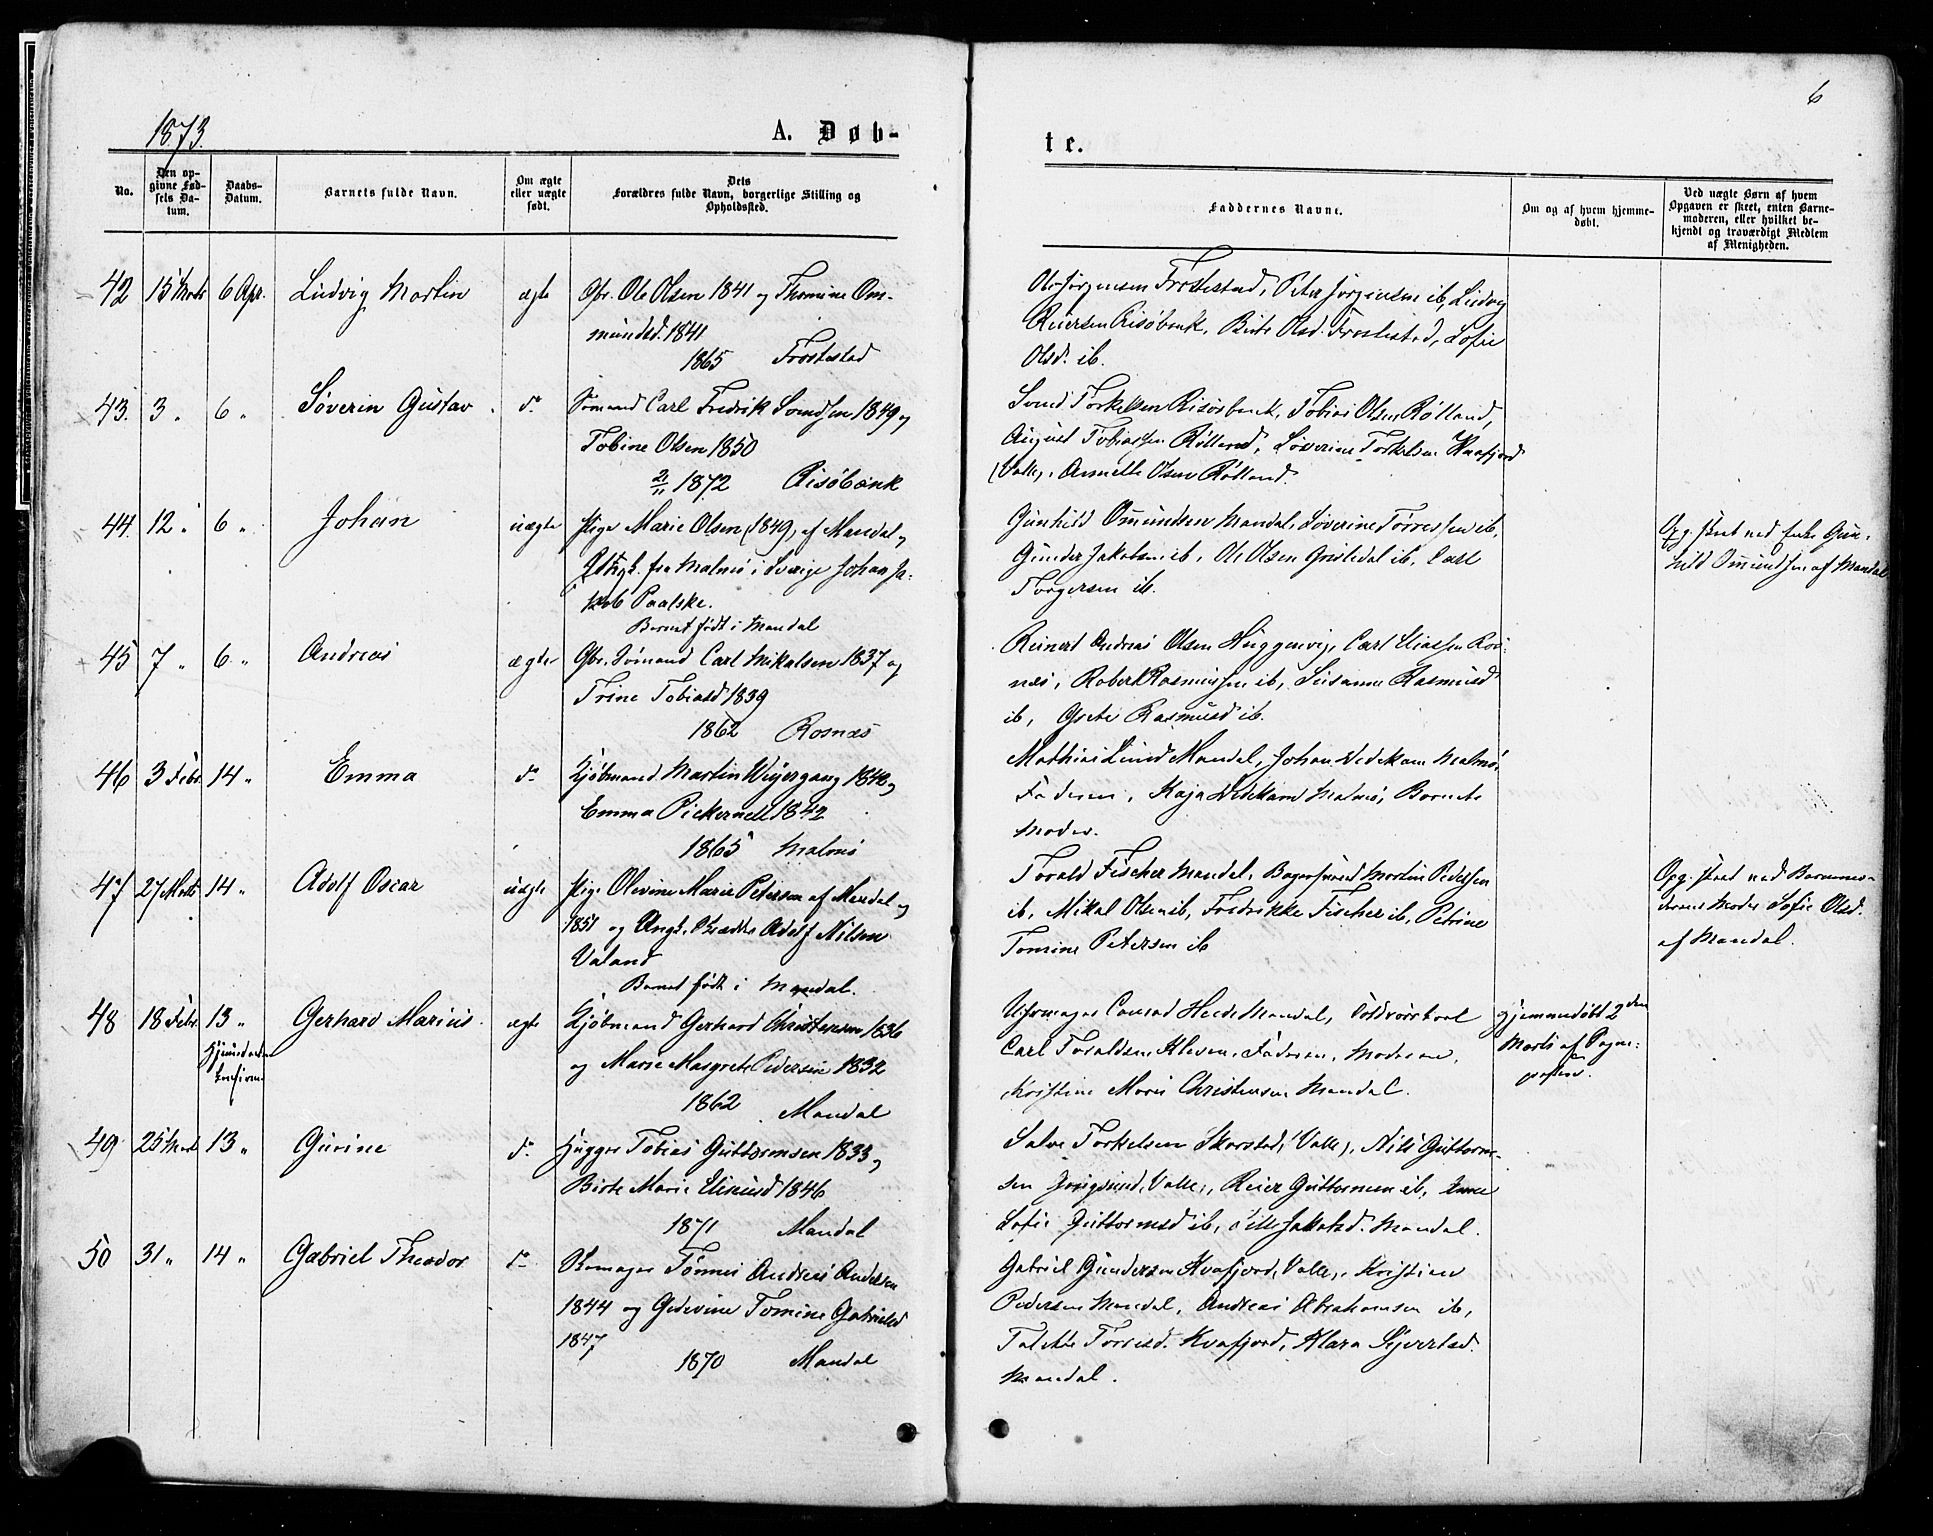 1873.
A. Døb-
te.
6
No.
Den op-
givne Fød-
sels Da-
tum.
Daabs-
Datum.
Barnets fulde Navn.
Om ægte
eller uægte
født.
Dets
Forældres fulde Navn, borgerlige Stilling og
Opholdssted.
Faddernes Navne.
Om og af hvem hjemme-
døbt.
Ved uægte Børn af hvem
Opgaven er skeet, enten Barne-
moderen, eller hvilket be-
kjendt og troværdigt Medlem
af Menigheden.
42 15 Marts 6 Apr. Ludvig Martin ægte Gbr. Ole Olsen 1841 og Thomine Om-
mundsd. 1841
1865 Frostestad
Ole Jørgensen Frostestad, Peter Jørgensen ib, Ludvig
Reiersen Risøbank, Birte Olsd. Frostestad, Sofie
Olsd. ib.
43. 3 " 6 " Søverin Gustav do Sømand Carl Fredrik Svendsen 1849 og
Tobine Olsen 1850
21/11 1872 Risøbank
Svend Torkelsen Risøbank, Tobias Olsen Røiland,
August Tobiassen Røiland, Søverine Torkelsen Kvafjord
(Valle), Annette Olsen Røiland.
44. 12 " 6 " Johan uægte Pige Marie Olsen (1849) af Mandal og
fra Malmø i Sverige Johan Ja-
kob Paalske.
Barnet født i Mandal
Gunhild Omundsen Mandal, Søverine Tørressen ib,
Gunder Jakobsen ib, Ole Olsen ib, Carl
Torgersen ib.
Opg. skeet ved Enke Gun-
hild Omundsen af Mandal
45 7 " 6 " Andreas ægte Gbr. Sømand Carl Mikalsen 1837 og
Trine Tobiasd 1839
1862 Rosnæs
Reinert Andreas Olsen Huggenvig, Carl Eliassen Ros-
næs, Robert Rasmussen ib, Susanne Rasmusd
ib, Grete Rasmusd ib.
46 3 Febr. 14 " Emma do Kjøbmand Martin Weyergang 1840 og
Emma Pickernell 1842
1865 Malmø
Mathias Lund Mandal, Johan Vedekam Malmø,
Faderen, Kaja Vedekam Malmø, Barnets
Moder.
47 27 Marts 14 " Adolf Oscar uægte Pige Olevine Marie Petersen af Mandal og
1851 og Ungk. Adolf Nilsen
Valand
Barnet født i Mandal.
Torald Fischer Mandal, Bagersvend Martin Pedersen
ib, Mikal Olsen ib, Fredrikke Fischer ib, Petrine
Tomine Petersen ib
Opg. skeet ved Barnemo-
derens Moder Sofie Olsd.
af Mandal.
48 18 Febr. 13 " Gerhard Marius ægte Kjøbmand Gerhard Christensen 1836
og Marie Margrete Pedersen 1832
1862 Mandal
Uhrmager Conrad Heide Mandal,
Carl Toraldsen Kleven, Faderen, Moderen,
Kristine Marie Christensen Mandal.
Hjemmedøbt 2den
Marts af Sogne-
præsten.
49 25 Marts 13 " Gurine do Hugger Tobias Guttormsen 1833 og
Birte Marie Eliasd 1846
1871 Mandal
Salve Torkelsen Skarstad (Valle), Nils Guttorm-
sen (Valle), Reier Guttormsen ib, Anne
Sofie Guttormsd ib, Jakobsd. Mandal.
50 31 " 14 " Gabriel Theodor do Tønnes Andreas Andersen
1844 og Gedevine Tomine Gabrielsd
1847
1870 Mandal
Gabriel Gundersen Kvafjord (Valle), Kristian
Pedersen Mandal, Andreas Abrahamsen ib,
Torresd. Kvafjord, Klara Sjvertsd.
Mandal.